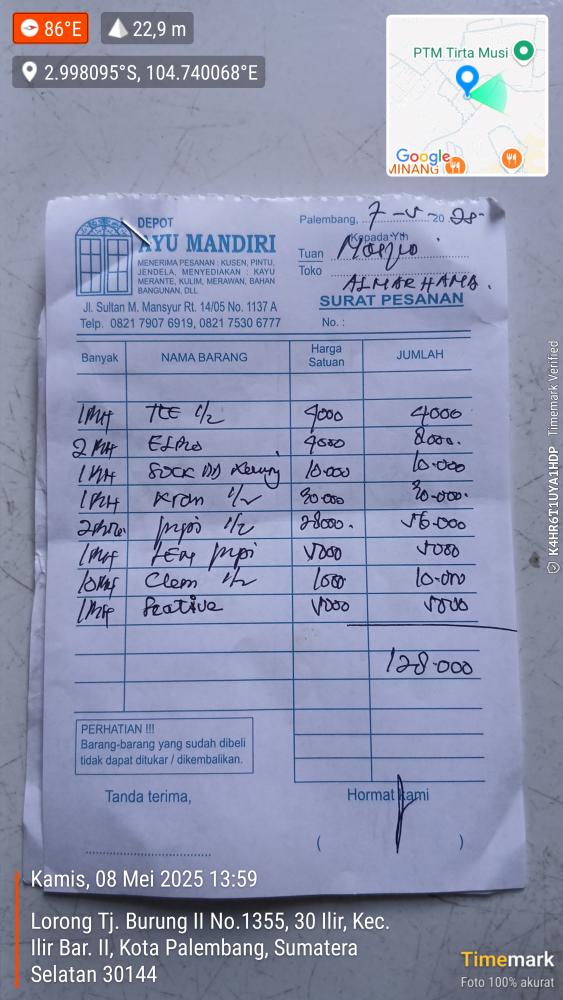 86°E 22,9 m
2.998095°S, 104.740068°E
PTM Tirta Musi
Google
MINANG
DEPOT
AYU MANDIRI
MENERIMA PESANAN : KUSEN, PINTU,
JENDELA, MENYEDIAKAN : KAYU
MERANTE, KULIM, MERAWAN, BAHAN
BANGUNAN, DLL
Jl. Sultan M. Mansyur Rt. 14/05 No. 1137 A
Telp. 0821 7907 6919, 0821 7530 6777
Palembang, 7-V-20
Kepada Yth
Tuan
Toko
SURAT PESANAN
No. :
Banyak NAMA BARANG Harga Satuan JUMLAH
TEE 1/2 4000 4000
2 4000 8000.
1 SOCK DD 10.000 10.000
1 Kran 1/2 30.000 30.000.
2 pipi 1/2 28000. 56.000
1 LEM pipi 5000 5000
10 Clem 1/2 1000 10.000
1 5000 5000
128.000
PERHATIAN !!!
Barang-barang yang sudah dibeli
tidak dapat ditukar / dikembalikan.
Tanda terima, Hormat kami
( )
Kamis, 08 Mei 2025 13:59
Lorong Tj. Burung II No.1355, 30 Ilir, Kec.
Ilir Bar. II, Kota Palembang, Sumatera
Selatan 30144
K4HR6T1UYA1HDP Timemark Verified
Timemark
Foto 100% akurat